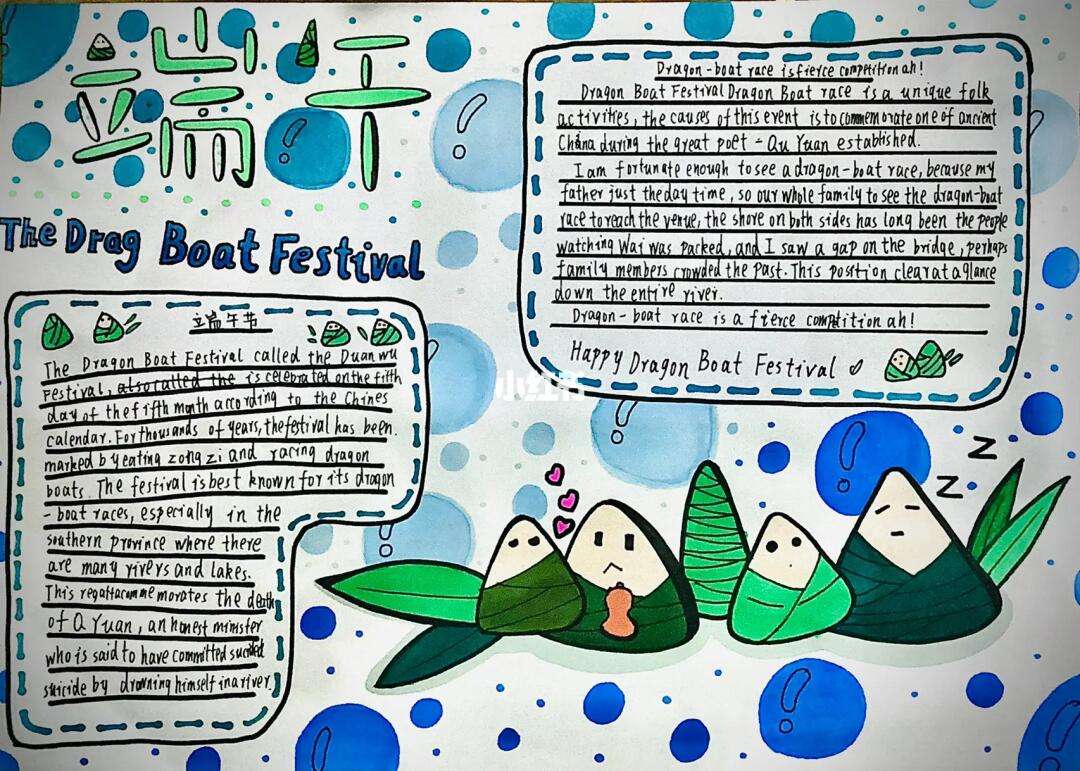 端午
The Drag Boat Festival
端午节
The Dragon Boat Festival called the Duanwu
Festival, also called the is celebrated on the fifth
day of the fifth month according to the Chines
calendar. For thousands of years, the festival has been.
marked by eating zong zi and racing dragon
boats. The festival is best known for its dragon
-boat races, especially in the
southern province where there
are many rivers and lakes.
This regatta commemorates the death
of Q Yuan, an honest minister
who is said to have committed sucided
suicide by drowning himself in a river.
Dragon-boat race is fierce competition ah!
Dragon Boat Festival Dragon Boat race is a unique folk
activities, the causes of this event is to commemorate one of ancient
China during the great poet - Qu Yuan established.
I am fortunate enough to see a dragon-boat race, because my
father just the day time, so our whole family to see the dragon-boat
race to reach the venue, the shore on both sides has long been the people
watching Wai was packed, and I saw a gap on the bridge, perhaps
family members crowded the past. This position clear at a glance
down the entire river.
Dragon-boat race is a fierce competition ah!
Happy Dragon Boat Festival
小红书
Z
Z